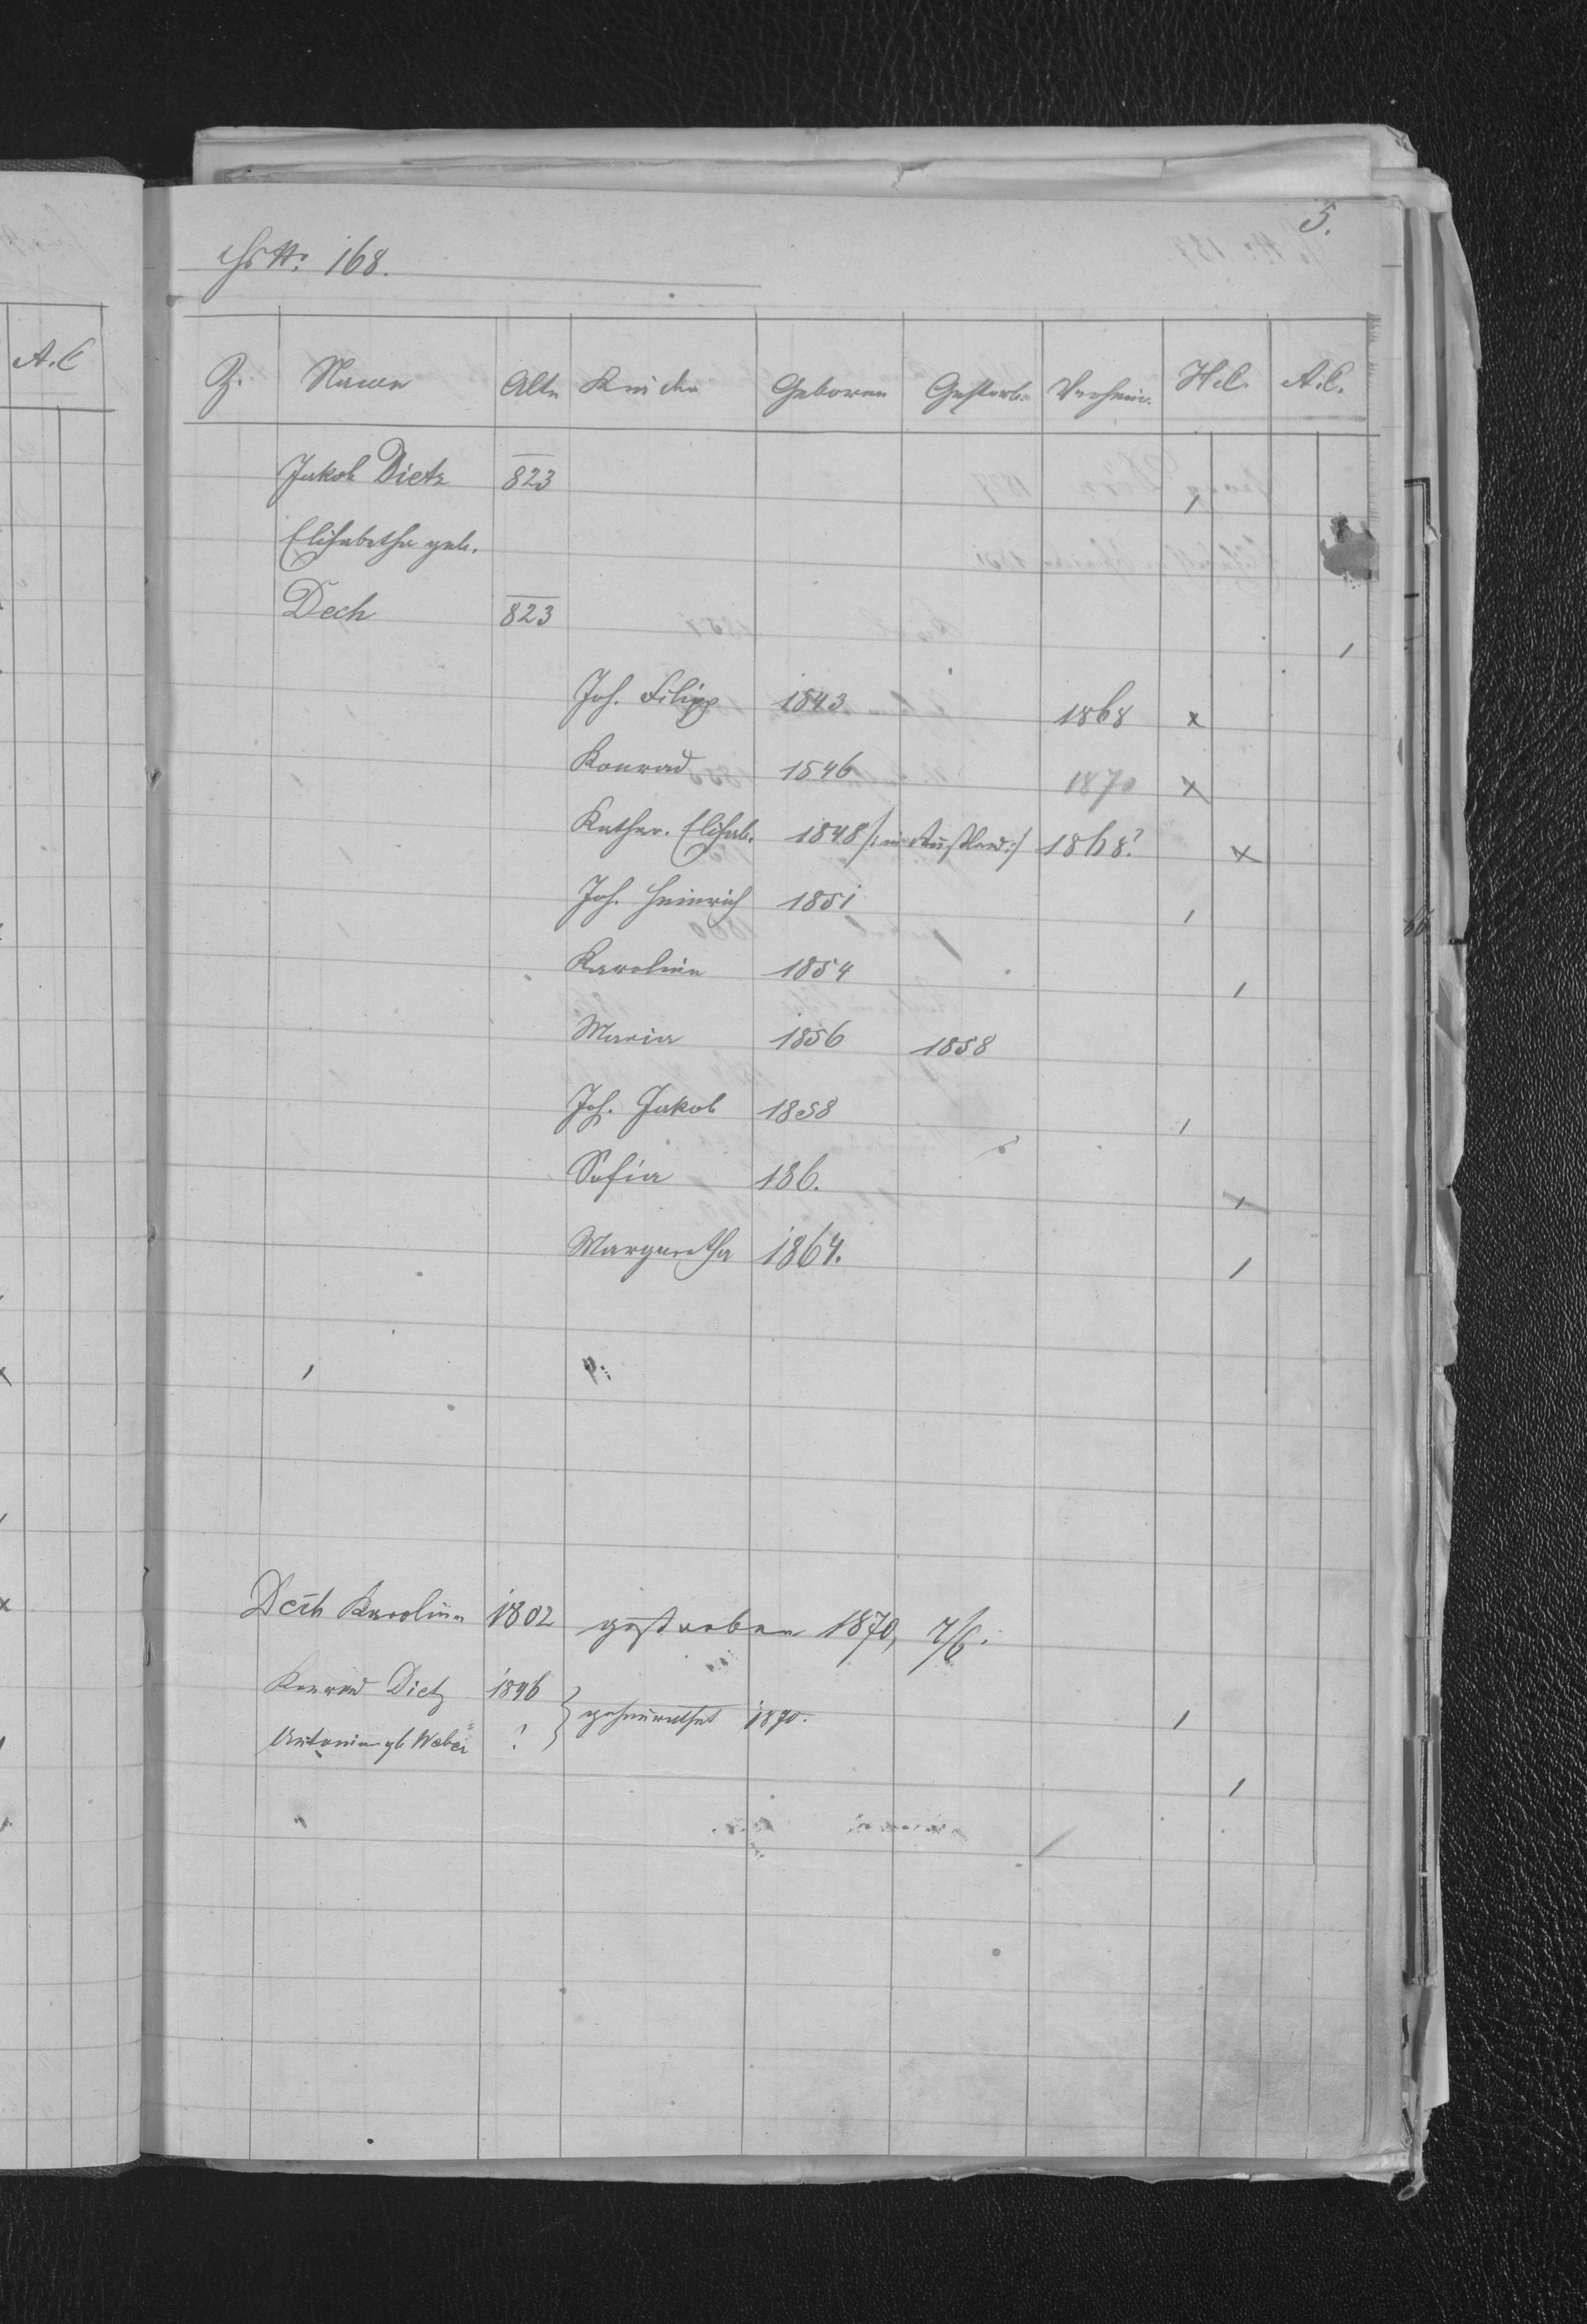 5.
Hs №: 168.
Z. Namen Alte Kinder Geboren Gestorb. Verheir. H.C. A.C.
Jakob Dietz 823
Elisabetha geb.
Dech 823
Joh. Filipp 1843 1868 x
Konrad 1846 1870 x
Kathar. Elisab. 1848 /: in Rußland :/ 1868? x
Joh. Heinrich 1851
Karolina 1854
Maria 1856 1858
Joh. Jakob 1858
Sofia 186.
Margaretha 1864.
Dech Karolina 1802 gestorben 1870, 7/6.
Konrad Dietz 1846 } geheirathet 1870.
Antonia gb Weber ?
A.C